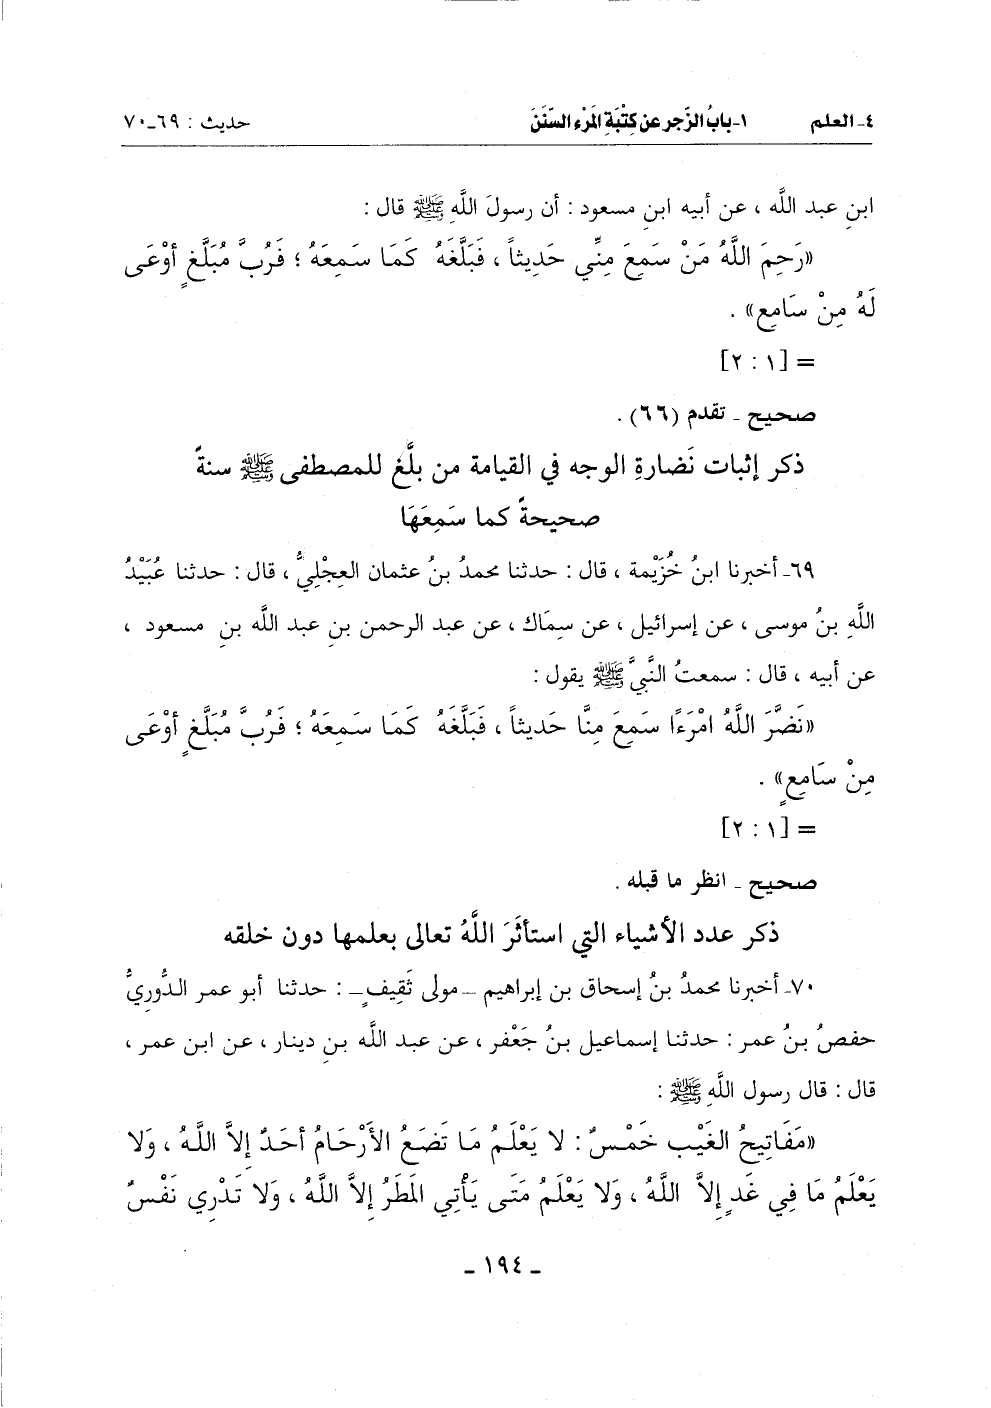 ٤ـ العلم ١- بابُ الزّجر عن كِتْبَةِ المَرْءِ السُّنَنَ حديث : ٦٩ـ٧٠
ابنِ عبد اللَّه ، عن أبيه ابنِ مسعود : أن رسولَ اللَّهِ ﷺ قال :
«رَحِمَ اللَّهُ مَنْ سَمِعَ مِنِّي حَدِيثاً ، فَبَلَّغَهُ كَمَا سَمِعَهُ ؛ فَرُبَّ مُبَلَّغٍ أوْعَى
لَهُ مِنْ سَامِعٍ» .
= [١ : ٢]
صحيح ـ تقدم (٦٦) .
ذكر إثبات نَضارةِ الوجه في القيامة من بلَّغ للمصطفى ﷺ سنةً
صحيحةً كما سَمِعَهَا
٦٩ـ أخبرنا ابنُ خُزَيْمة ، قال : حدثنا محمدُ بنُ عثمان العِجْليُّ ، قال : حدثنا عُبَيْدُ
اللَّهِ بنُ موسى ، عن إسرائيل ، عن سِمَاك ، عن عبد الرحمن بنِ عبد اللَّه بنِ مسعود ،
عن أبيه ، قال : سمعتُ النَّبيَّ ﷺ يقول :
«نَضَّرَ اللَّهُ امْرَءًا سَمِعَ مِنَّا حَديثاً ، فَبَلَّغَهُ كَمَا سَمِعَهُ ؛ فَرُبَّ مُبَلَّغٍ أوْعَى
مِنْ سَامِعٍ» .
= [١ : ٢]
صحيح ـ انظر ما قبله .
ذكر عدد الأشياء التي استأثَرَ اللَّهُ تعالى بعلمها دون خلقه
٧٠ـ أخبرنا محمدُ بنُ إسحاق بن إبراهيم ـ مولى ثَقِيفٍ ـ : حدثنا أبو عمر الدُّوريُّ
حفصُ بنُ عمر : حدثنا إسماعيل بنُ جَعْفر ، عن عبد اللَّه بنِ دينار ، عن ابن عمر ،
قال : قال رسول اللَّهِ ﷺ :
«مَفَاتِيحُ الغَيْبِ خَمْسٌ : لا يَعْلَمُ مَا تَضَعُ الأَرْحَامُ أحَدٌ إلاَّ اللَّهُ ، وَلا
يَعْلَمُ مَا فِي غَدٍ إلاَّ اللَّهُ ، وَلا يَعْلَمُ مَتَى يَأْتِي المَطَرُ إلاَّ اللَّهُ ، وَلا تَدْرِي نَفْسٌ
ـ ١٩٤ ـ